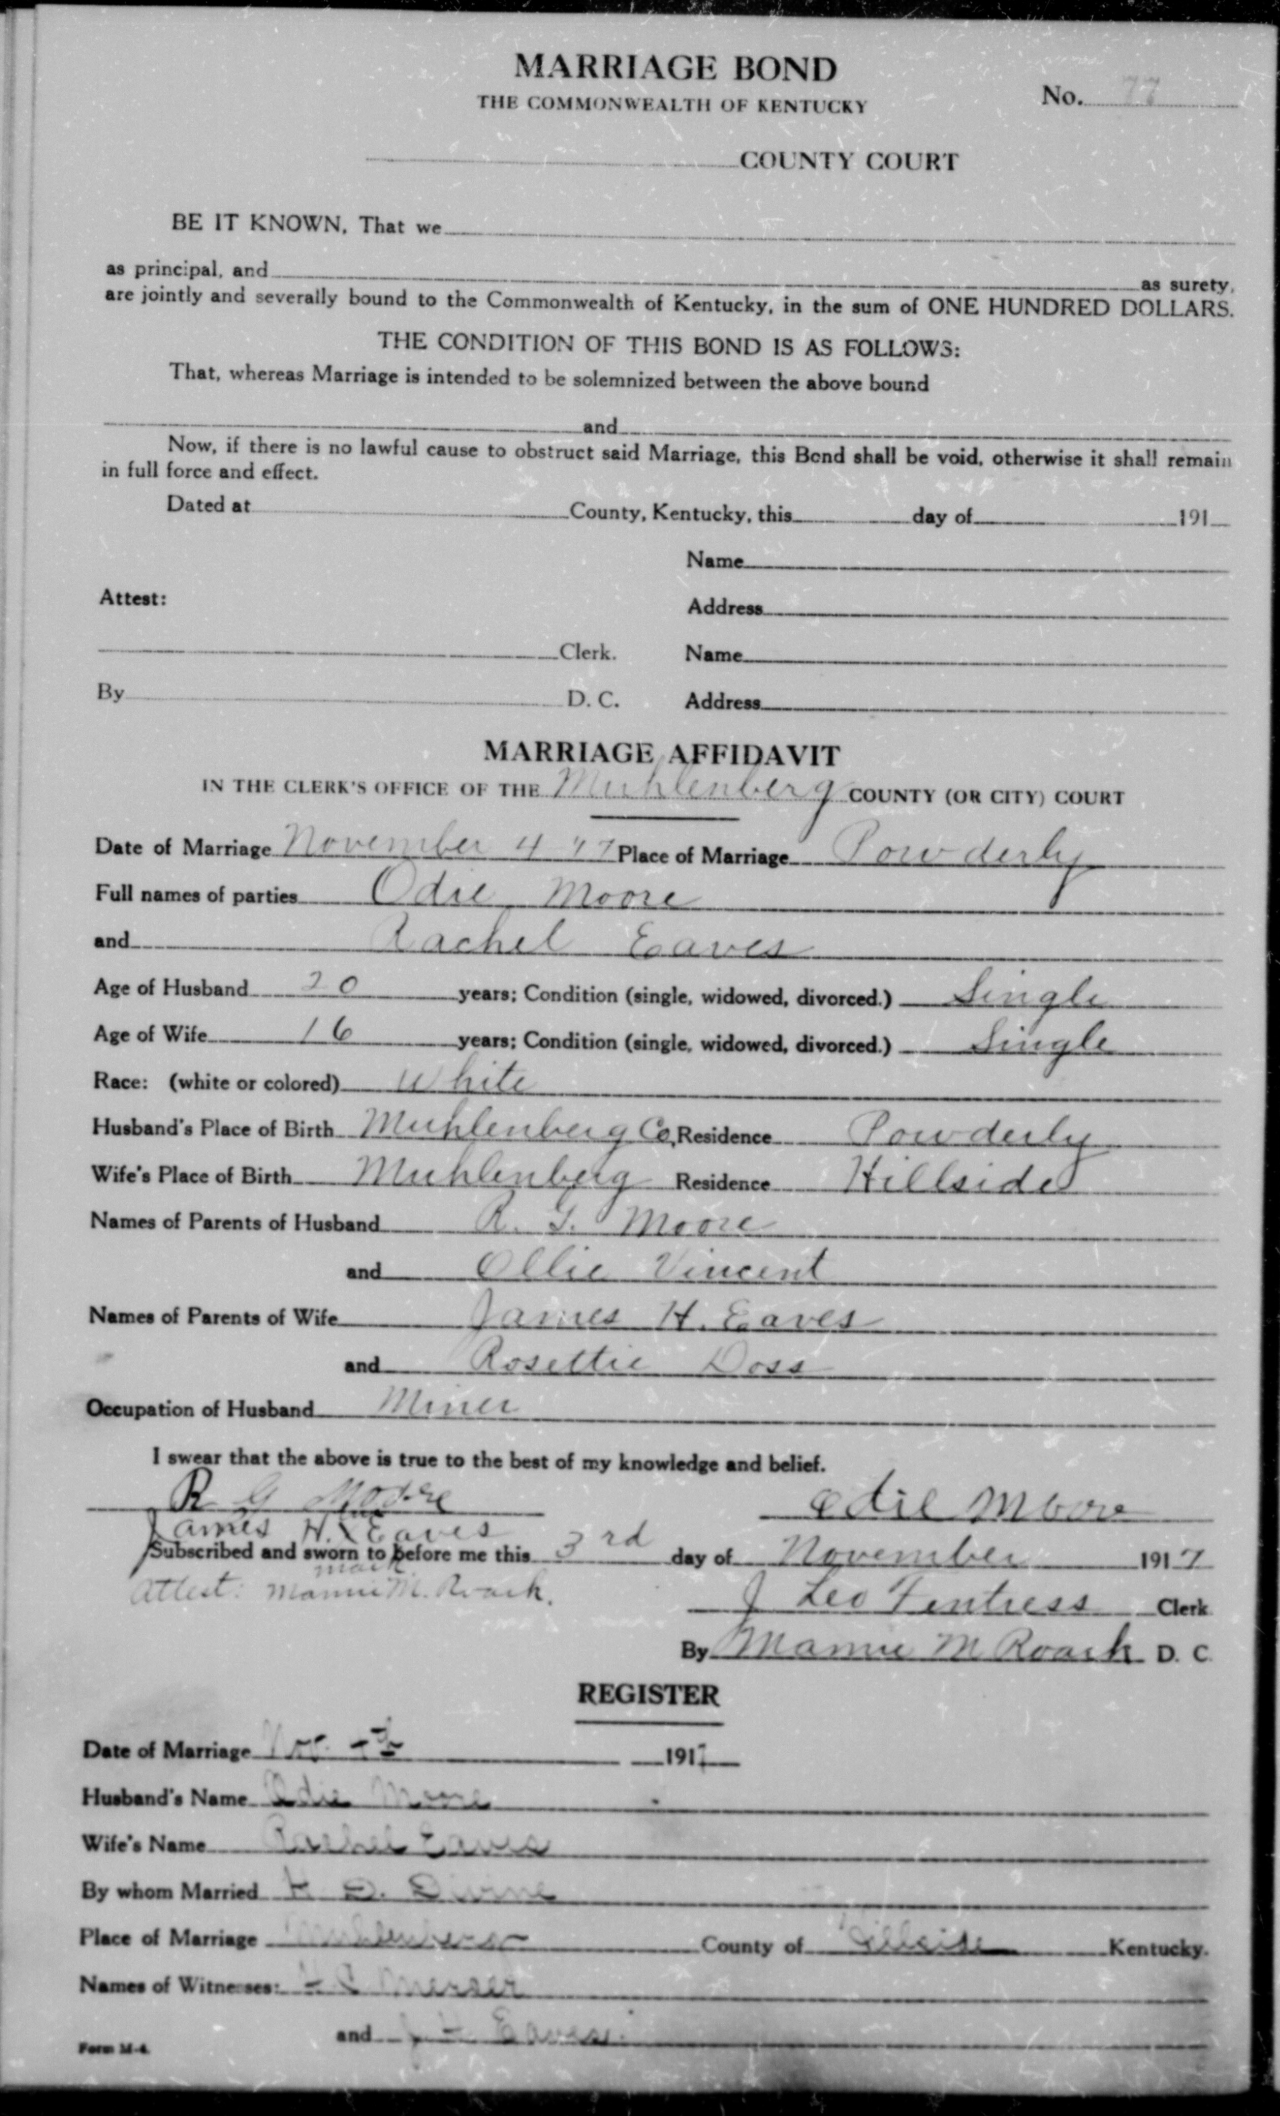 MARRIAGE BOND
THE COMMONWEALTH OF KENTUCKY
No. 77
COUNTY COURT
BE IT KNOWN, That we
as principal, and as surety,
are jointly and severally bound to the Commonwealth of Kentucky, in the sum of ONE HUNDRED DOLLARS.
THE CONDITION OF THIS BOND IS AS FOLLOWS:
That, whereas Marriage is intended to be solemnized between the above bound
and
Now, if there is no lawful cause to obstruct said Marriage, this Bond shall be void, otherwise it shall remain
in full force and effect.
Dated at County, Kentucky, this day of 191
Name
Attest:
Address
Clerk. Name
By D. C. Address
MARRIAGE AFFIDAVIT
IN THE CLERK'S OFFICE OF THE Muhlenberg COUNTY (OR CITY) COURT
Date of Marriage November 4 '17 Place of Marriage Powderly
Full names of parties Odie Moore
and Rachel Eaves
Age of Husband 20 years; Condition (single, widowed, divorced.) Single
Age of Wife 16 years; Condition (single, widowed, divorced.) Single
Race: (white or colored) White
Husband's Place of Birth Muhlenberg Co, Residence Powderly
Wife's Place of Birth Muhlenberg Residence Hillside
Names of Parents of Husband R. G. Moore
and Ollie Vincent
Names of Parents of Wife James H. Eaves
and Rosettie Doss
Occupation of Husband Miner
I swear that the above is true to the best of my knowledge and belief.
R G Moore Odie Moore
his
James H. X Eaves
Subscribed and sworn to before me this 3rd day of November 1917
mark
Attest: Mamie M. Roark. J Leo Fentress Clerk
By Mamie M Roark D. C.
REGISTER
Date of Marriage Nov. 4th 1917
Husband's Name Odie Moore
Wife's Name Rachel Eaves
By whom Married
Place of Marriage Muhlenberg County of Hillside Kentucky.
Names of Witnesses: Mercer
and J H Eaves
Form M-4.